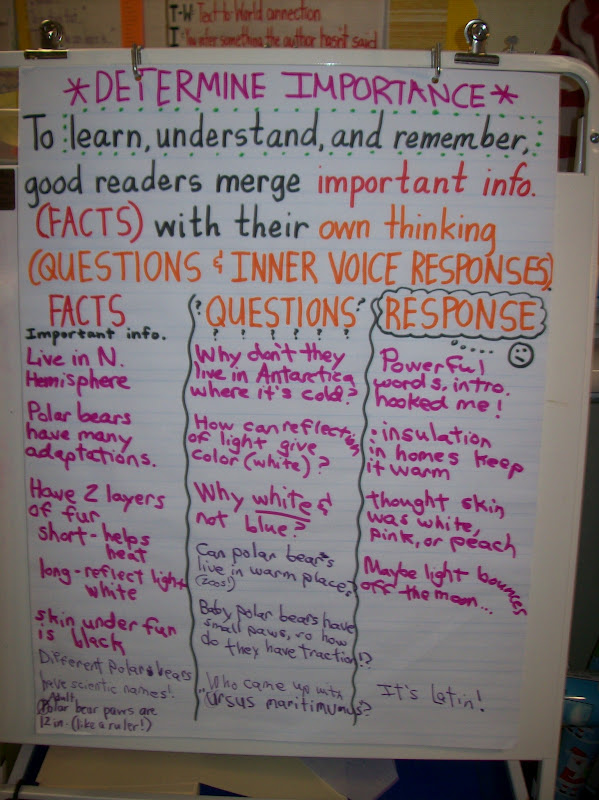 T-W Text to World connection
I: You infer something the author hasn't said
*DETERMINE IMPORTANCE*
To learn, understand, and remember,
good readers merge important info.
(FACTS) with their own thinking
(QUESTIONS & INNER VOICE RESPONSES).
FACTS
Important info.
Live in N.
Hemisphere
Polar bears
have many
adaptations.
Have 2 layers
of fur
short - helps
heat
long - reflect light
white
skin under fur
is black
Different polar bears
have scientic names!
Adult
Polar bear paws are
12 in. (like a ruler!)
? QUESTIONS ?
? ? ? ? ? ?
Why don't they
live in Antarctica
where it's cold?
How can reflection
of light give
color (white)?
Why white &
not blue?
Can polar bears
live in warm places?
(zoos!)
Baby polar bears have
small paws, so how
do they have traction!?
Who came up with
"Ursus maritimunus"?
RESPONSE
Powerful
words, intro.
hooked me!
: insulation
in homes keep
it warm
thought skin
was white,
pink, or peach
Maybe light bounces
off the moon...
It's Latin!